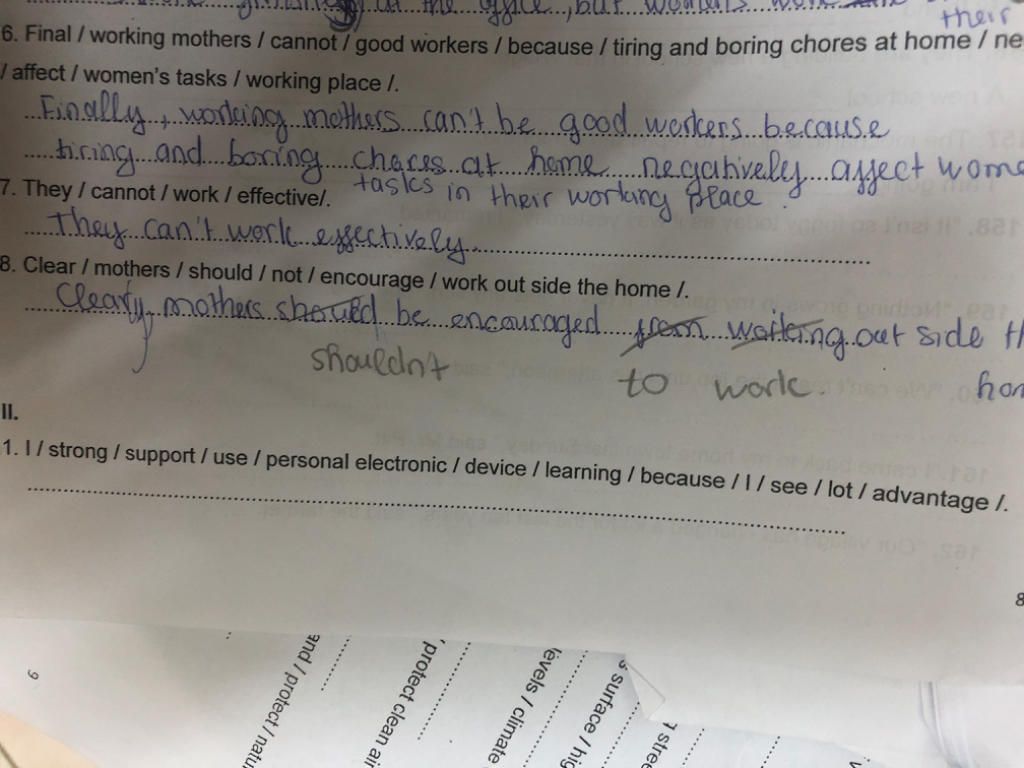 at the office, but women's work
their
6. Final / working mothers / cannot / good workers / because / tiring and boring chores at home / ne
/ affect / women's tasks / working place /.
Finally, working mothers can't be good workers because
tiring and boring chores at home negatively affect wome
tasks in their working place.
7. They / cannot / work / effective/.
They can't work effectively
8. Clear / mothers / should / not / encourage / work out side the home /.
Clearly, mothers should be encouraged from working out side th
shouldn't to work. hom
II.
1. I / strong / support / use / personal electronic / device / learning / because / I / see / lot / advantage /.
8
9
and / protect / natu
/ protect clean air
levels / climate
s surface / hig
stree